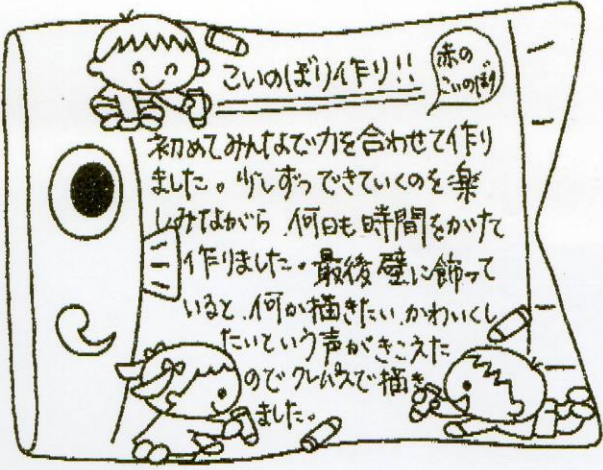 こいのぼり作り!!
赤の
こいのぼり
初めてみんなで力を合わせて作り
ました。少しずつできていくのを楽
しみながら、何日も時間をかけて
作りました。最後壁に飾って
いると、何か描きたい、かわいくし
たいという声がきこえた
のでクレパスで描き
ました。